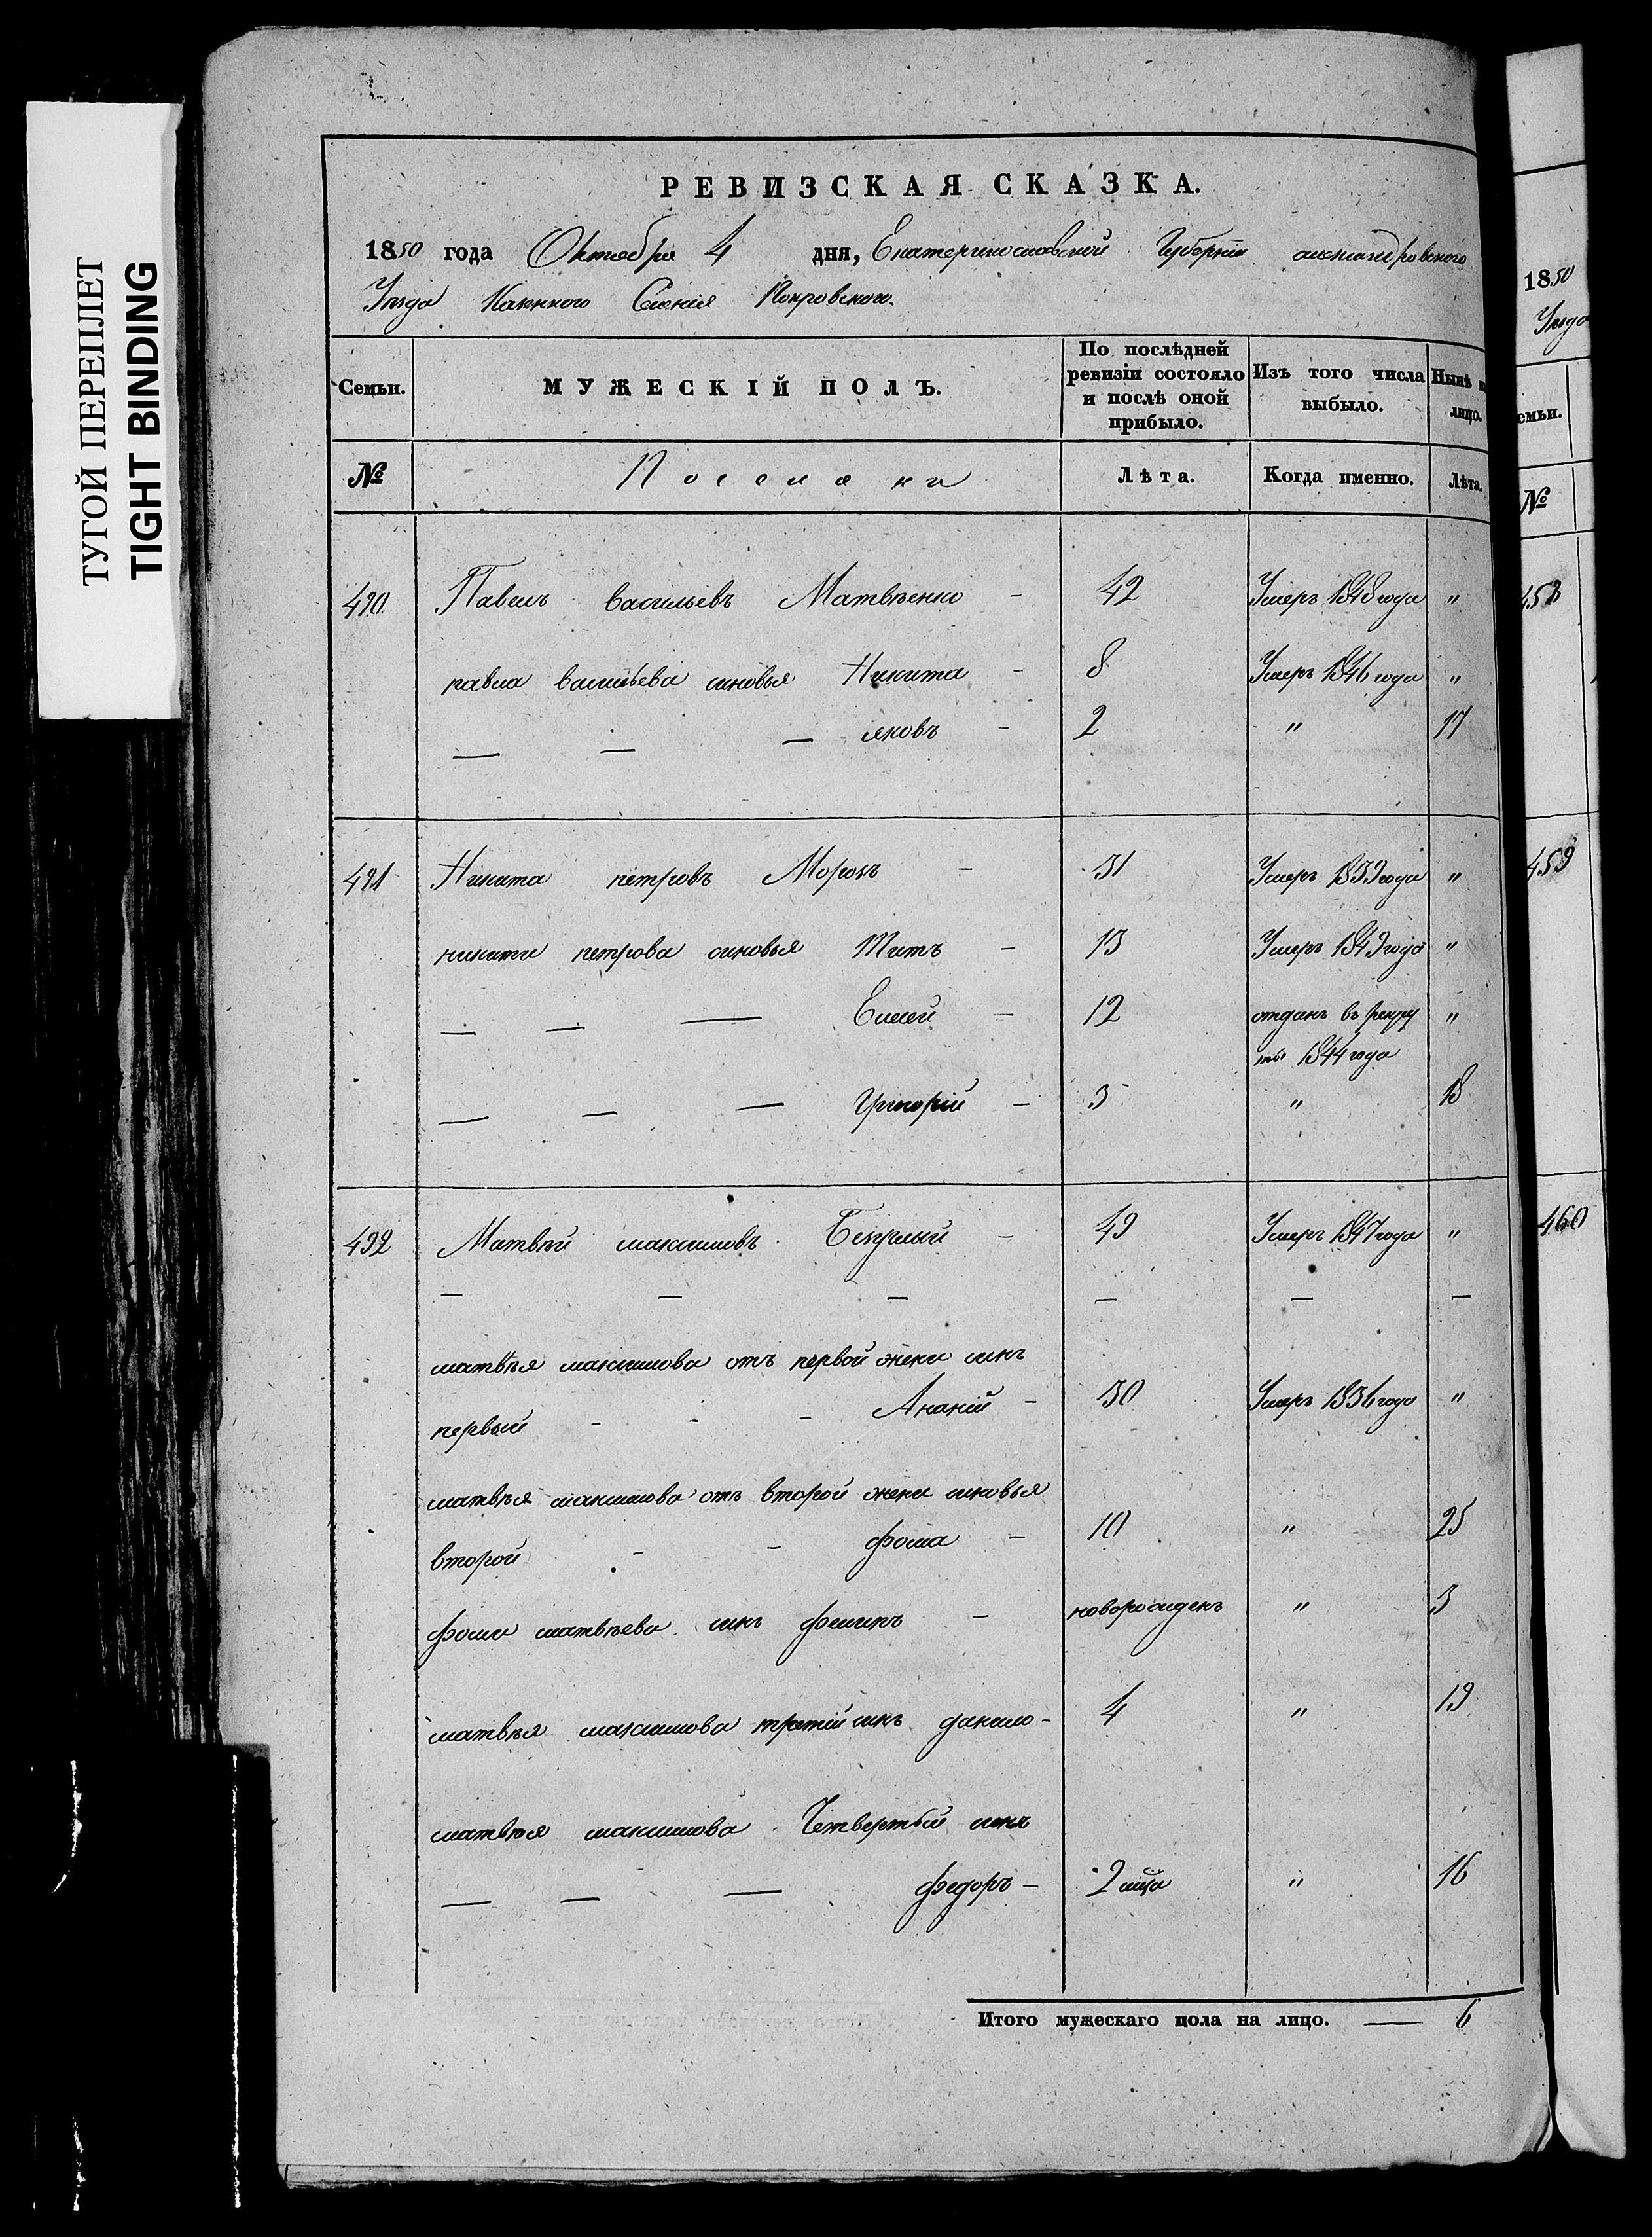 ТУГОЙ ПЕРЕПЛЕТ
TIGHT BINDING
РЕВИЗСКАЯ СКАЗКА.
1850 года Октября 4 дня, Екатеринославской Губернiи александровского
Уезда Казенного Селенiя Покровского.
Семьи. МУЖЕСКІЙ ПОЛЪ. По послѣдней ревизіи состояло и послѣ оной прибыло. Изъ того числа выбыло. Нынѣ на лицо.
№ Поселяне Лѣта. Когда именно. Лѣта.
490 Павелъ васильевъ Матвѣенко - 42 Умеръ 1848 года "
павла васильева сыновья Никита - 8 Умеръ 1846 года "
— — — яковъ - 2 " 17
491 Никита петровъ Морозъ - 31 Умеръ 1839 года "
никиты петрова сыновья Титъ - 13 Умеръ 1849 года "
— — — Елисей - 12 отданъ въ рекру "
ты 1844 года
— — — Григорій - 3 " 18
492 Матвѣй максимовъ - 49 Умеръ 1847 года "
— — — — — —
матвѣя максимова отъ первой жены сынъ
первый - - - Ананій - 30 Умеръ 1836 года "
матвѣя максимова отъ второй жены сыновья
второй - - фома - 10 " 25
фомы матвѣева сынъ филипъ - новорожденъ " 3
матвѣя максимова третій сынъ данило - 4 " 19
матвѣя максимова Четвертый сынъ
— — — федоръ - 2 мца " 16
Итого мужескаго пола на лицо. — 6
1850
Уезда
емьи.
№
458
459
460